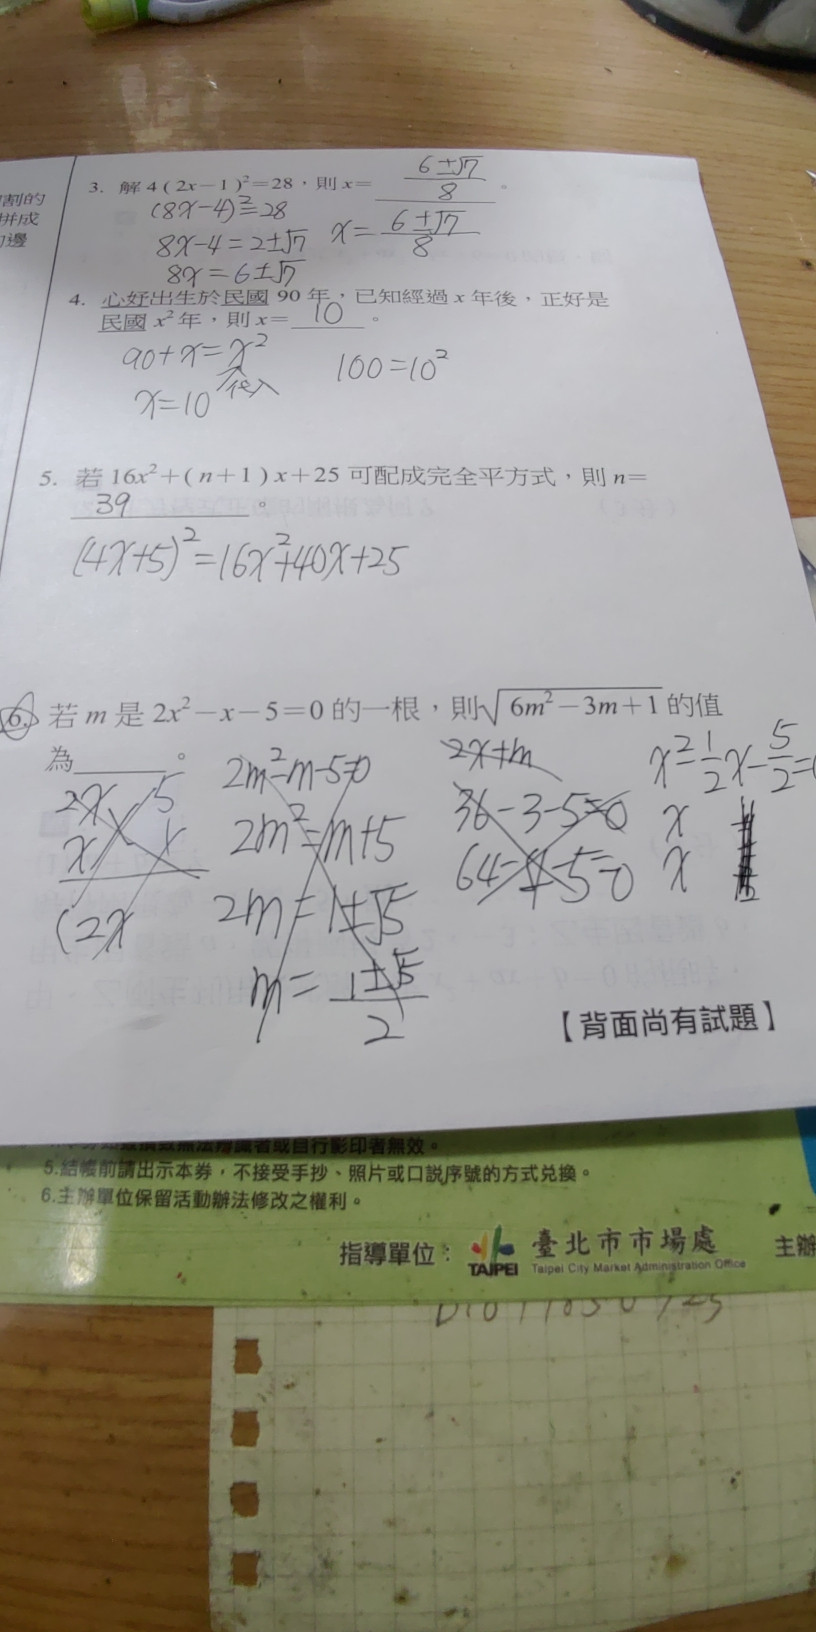 割的
拼成
邊
3. 解 4 ( 2x－1 )²＝28，則 x＝ (6±√7)/8 。
(8x－4)²＝28
8x－4＝2±√7 x＝(6±√7)/8
8x＝6±√7
4. 心妤出生於民國 90 年，已知經過 x 年後，正好是
民國 x² 年，則 x＝ 10 。
90＋x＝x² 100＝10²
x＝10 代入
5. 若 16x²＋( n＋1 ) x＋25 可配成完全平方式，則 n＝
39 。
(4x＋5)²＝16x²＋40x＋25
6. 若 m 是 2x²－x－5＝0 的一根，則√(6m²－3m＋1) 的值
為 。
2x 5
x
(2x
2m²－m－5＝0
2m²＝m＋5
2m＝1±√5
m＝(1±√5)/2
2x＋m
36－3－5＝0
64－4－5＝0
x²－1/2x－5/2＝0
x
x
【背面尚有試題】
無法辨識者或自行影印者無效。
5.結帳前請出示本券，不接受手抄、照片或口説序號的方式兑換。
6.主辦單位保留活動辦法修改之權利。
指導單位： TAIPEI 臺北市市場處 主辦
Taipei City Market Administration Office